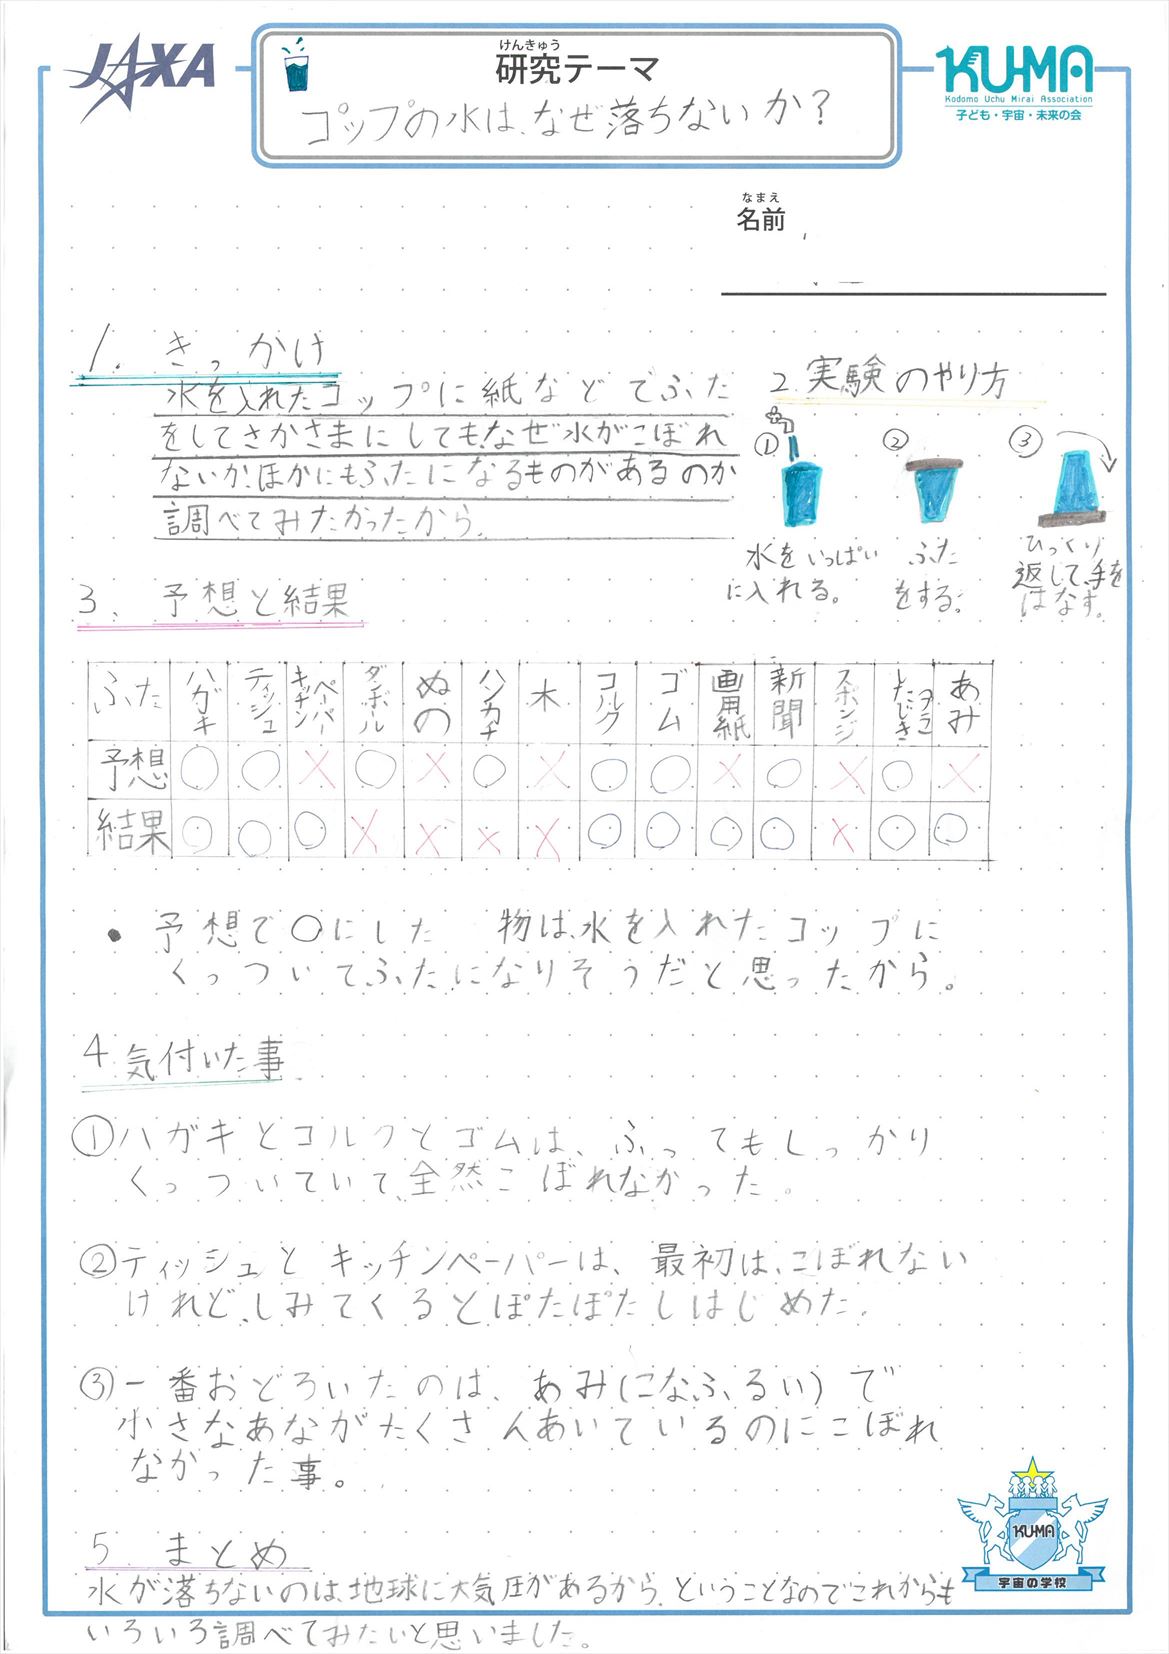 JAXA
けんきゅう
研究テーマ
コップの水は、なぜ落ちないか？
KU-MA
Kodomo Uchu Mirai Association
子ども・宇宙・未来の会
なまえ
名前
1. きっかけ
水を入れたコップに紙などでふた
をしてさかさまにしても、なぜ水がこぼれ
ないか、ほかにもふたになるものがあるのか
調べてみたかったから。
2. 実験のやり方
① ② ③
水をいっぱい
に入れる。
ふた
をする。
ひっくり
返して、手を
はなす。
3、予想と結果
ふた ハガキ ティッシュ キッチンペーパー ダンボール ぬの ハンカチ 木 コルク ゴム 画用紙 新聞 スポンジ プラしたじき あみ
予想 ○ ○ × ○ × ○ × ○ ○ × ○ × ○ ×
結果 ○ ○ ○ × × × × ○ ○ ○ ○ × ○ ○
• 予想で○にした 物は、水を入れたコップに
くっついてふたになりそうだと思ったから。
4. 気付いた事
①ハガキとコルクとゴムは、ふってもしっかり
くっついていて、全然こぼれなかった。
②ティッシュとキッチンペーパーは、最初は、こぼれない
けれど、しみてくるとぽたぽたしはじめた。
③一番おどろいたのは、あみ(こなふるい)で
小さなあながたくさんあいているのにこぼれ
なかった事。
5. まとめ
水が落ちないのは、地球に大気圧があるから。ということなのでこれからも
いろいろ調べてみたいと思いました。
KU-MA
宇宙の学校